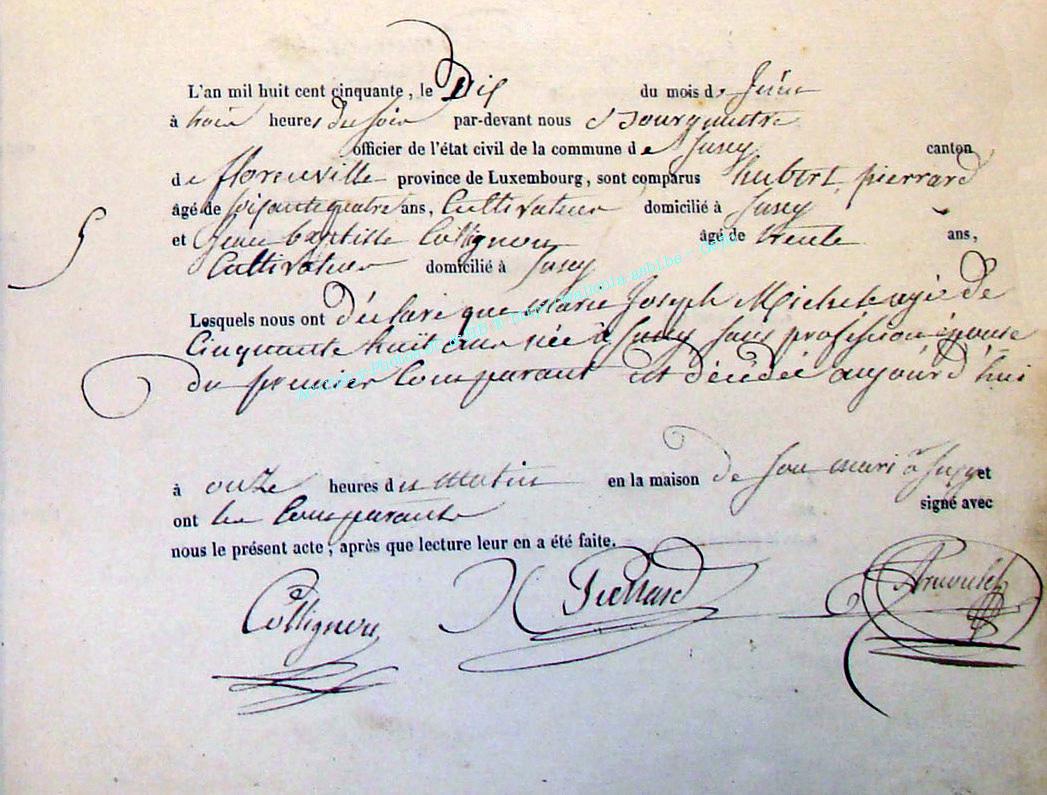 L'an mil huit cent cinquante, le Dix du mois de Juin
à trois heures du soir par-devant nous
officier de l'état civil de la commune de canton
de florenville province de Luxembourg, sont comparus hubert pierrard
âgé de soixante quatre ans, Cultivateur domicilié à
et Jean baptiste Collignon âgé de trente ans,
Cultivateur domicilié à
Lesquels nous ont déclaré que Marie Joseph Michel agée de
Cinquante huit ans née à sans profession épouse
du premier Comparant est décédée aujourd'hui
à onze heures du matin en la maison de son mari à et
ont les Comparants signé avec
nous le présent acte, après que lecture leur en a été faite.
Collignon Pierrard
5